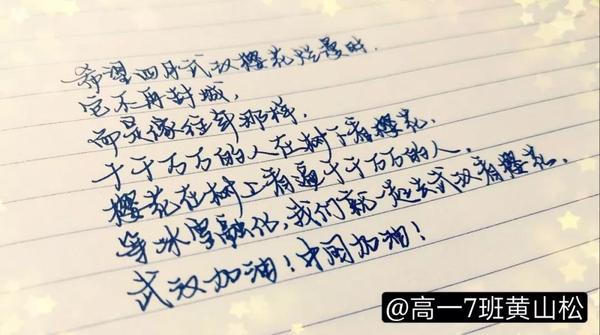 希望四月武汉樱花烂漫时，
它不再封城，
而是像往年那样，
千千万万的人在树下看樱花，
樱花在树上看遍千千万万的人，
等冰雪融化，我们就一起去武汉看樱花，
武汉加油！中国加油！
@高一7班黄山松